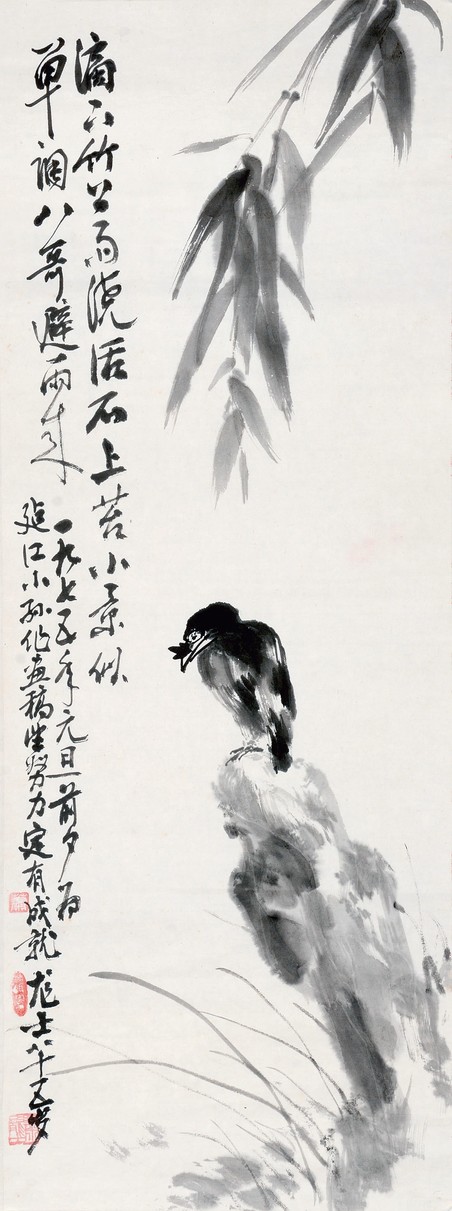 滴下竹雨浇活石上苔小景似
单调八哥避雨来
一九七五年元旦前夕为
延江小孙作画稿努力定有成就 尨士八十五岁